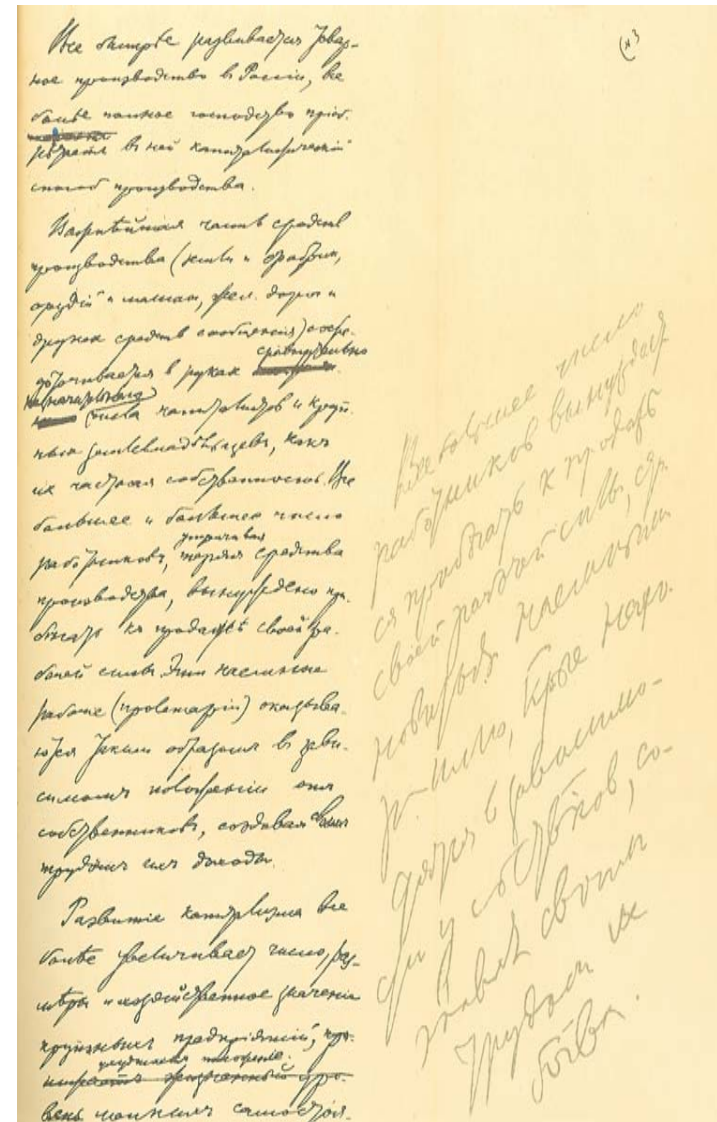 (н 3
Все быстрѣе развивается товар-
ное производство въ Россіи, все
болѣе полное господство пріоб-
рѣтаетъ въ ней капиталистическій
способ производства.
Важнѣйшая часть средствъ
производства (земли и фабрики,
орудій и машин, жел. дороги и
другихъ средствъ сообщенія) сосре-
доточивается в руках сравнительно
незначительнаго
числа капиталистовъ и круп-
ныхъ землевладѣльцевъ, какъ
ихъ частная собственность. Все
большее и большее число
работниковъ, утрачивая
теряя средства
производства, вынуждено при-
бѣгать къ продажѣ своей ра-
бочей силы. Эти наемные
рабочіе (пролетаріи) оказыва-
ются таким образомъ въ зави-
симомъ положеніи отъ
собственниковъ, создавая своимъ
трудомъ ихъ доходы.
Развитіе капитализма все
болѣе увеличиваетъ число, раз-
мѣры и хозяйственное значеніе
крупныхъ предпріятій,
ухудшаетъ положеніе
жизненный уро-
вень мелкихъ самостоя-
Все большее число
работников вынуждает
ся прибегать к продаже
своей рабочей силы, ст.
новиться наемными
р- ми, крые нахо-
дятся в зависимо-
сти у собствков, со-
здавая своим
трудом их
богва.